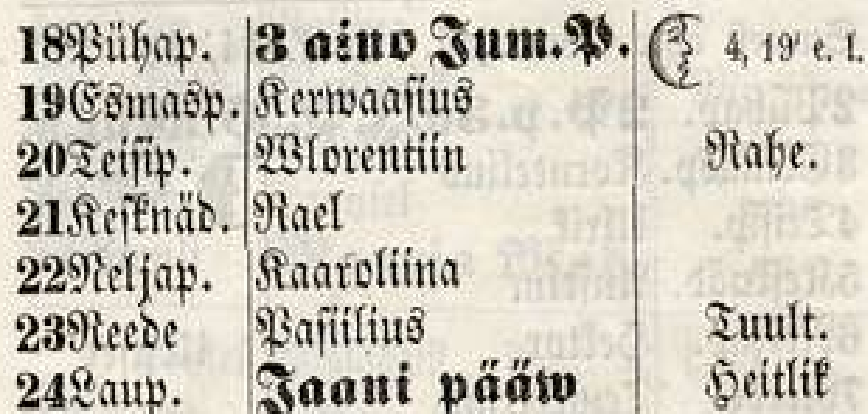 18 Pühap. 3 aino Jum.P. 4, 19' e. l.
19 Esmasp. Kerwaasius
20 Teisip. Wlorentiin Rahe.
21 Kesknäd. Rael
22 Neljap. Kaaroliina
23 Reede Pasiilius Tuult.
24 Laup. Jaani pääw Heitlik